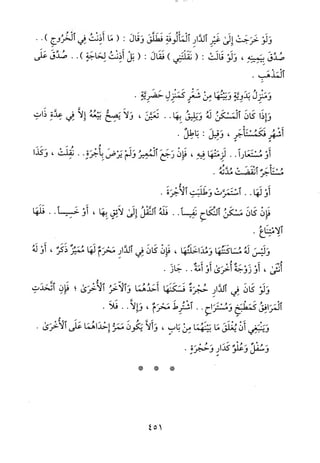 وَلَوْ خَرَجَتْ إِلَىٰ غَيْرِ ٱلدَّارِ ٱلْمَأْلُوفَةِ فَطَلَّقَ وَقَالَ : ( مَا أَذِنْتُ فِي ٱلْخُرُوجِ ) . .
صُدِّقَ بِيَمِينِهِ ، وَلَوْ قَالَتْ : ( نَقَلْتَنِي ) فَقَالَ : ( بَلْ أَذِنْتُ لِحَاجَةٍ ) . . صُدِّقَ عَلَى
ٱلْمَذْهَبِ .
وَمَنْزِلُ بَدَوِيَّةٍ وَبَيْتُهَا مِنْ شَعْرٍ كَمَنْزِلِ حَضَرِيَّةٍ .
وَإِذَا كَانَ ٱلْمَسْكَنُ لَهُ وَيَلِيقُ بِهَا . . تَعَيَّنَ ، وَلاَ يَصِحُّ بَيْعُهُ إِلاَّ فِي عِدَّةِ ذَاتِ
أَشْهُرٍ فَكَمُسْتَأْجَرٍ ، وَقِيلَ : بَاطِلٌ .
أَوْ مُسْتَعَاراً . . لَزِمَتْهَا فِيهِ ، فَإِنْ رَجَعَ ٱلْمُعِيرُ وَلَمْ يَرْضَ بِأُجْرَةٍ . . نُقِلَتْ ، وَكَذَا
مُسْتَأْجَرٌ ٱنْقَضَتْ مُدَّتُهُ .
أَوْ لَهَا . . ٱسْتَمَرَّتْ وَطَلَبَتِ ٱلأُجْرَةَ .
فَإِنْ كَانَ مَسْكَنُ ٱلنِّكَاحِ نَفِيساً . . فَلَهُ ٱلنَّقْلُ إِلَىٰ لاَئِقٍ بِهَا ، أَوْ خَسِيساً . . فَلَهَا
ٱلاِمْتِنَاعُ .
وَلَيْسَ لَهُ مُسَاكَنَتُهَا وَمُدَاخَلَتُهَا ، فَإِنْ كَانَ فِي ٱلدَّارِ مَحْرَمٌ لَهَا مُمَيِّزٌ ذَكَرٌ ، أَوْ لَهُ
أُنْثَىٰ ، أَوْ زَوْجَةٌ أُخْرَىٰ أَوْ أَمَةٌ . . جَازَ .
وَلَوْ كَانَ فِي ٱلدَّارِ حُجْرَةٌ فَسَكَنَهَا أَحَدُهُمَا وَٱلآخَرُ ٱلأُخْرَىٰ ؛ فَإِنِ ٱتَّحَدَتِ
ٱلْمَرَافِقُ كَمَطْبَخٍ وَمُسْتَرَاحٍ . . ٱشْتُرِطَ مَحْرَمٌ ، وَإِلاَّ . . فَلاَ .
وَيَنْبَغِي أَنْ يُغْلَقَ مَا بَيْنَهُمَا مِنْ بَابٍ ، وَأَلاَّ يَكُونَ مَمَرُّ إِحْدَاهُمَا عَلَى ٱلأُخْرَىٰ .
وَسُفْلٌ وَعُلْوٌ كَدَارٍ وَحُجْرَةٍ .
* * *
٤٥١